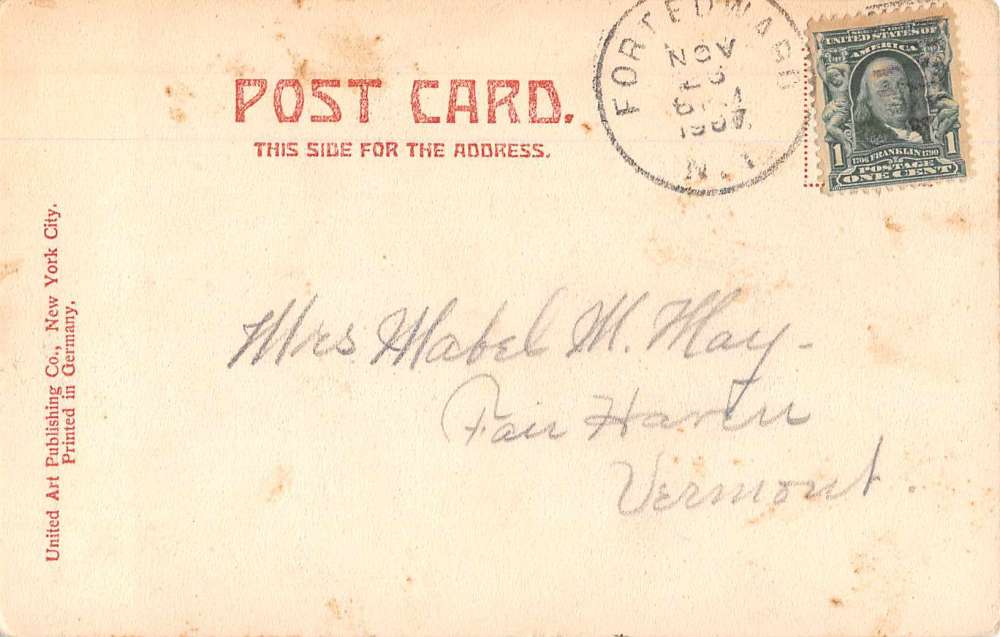 POST CARD.
THIS SIDE FOR THE ADDRESS.
FORT EDWARD
NOV
1907
N.Y.
UNITED STATES OF
AMERICA
1 1706 FRANKLIN 1790 1
POSTAGE
ONE CENT
Mrs Mabel M. May-
Fair Haven
Vermont.
United Art Publishing Co., New York City.
Printed in Germany.